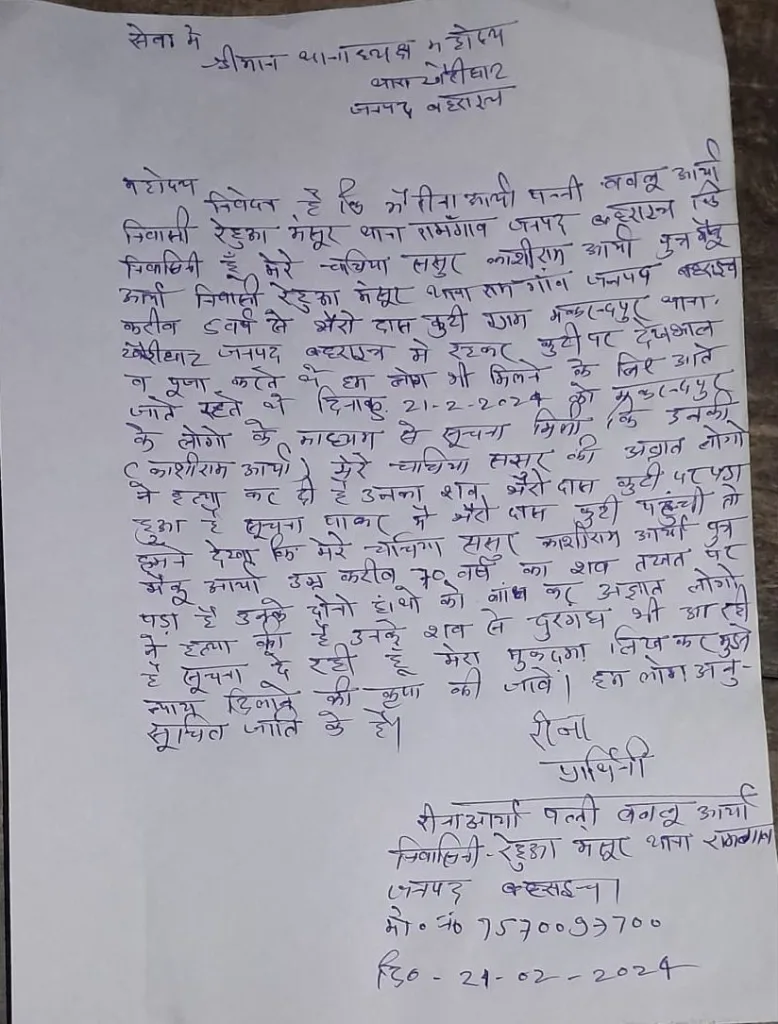 सेवा मे
श्रीमान थानाध्यक्ष महोदय
थाना खैरीघाट
जनपद बहराइच
महोदय
निवेदन है कि मैं रीना आर्या पत्नी बबलू आर्या
निवासी रेहुआ मंसूर थाना रामगाँव जनपद बहराइच कि
निवासिनी हूँ मेरे चचिया ससुर काशीराम आर्या पुत्र मैकू
आर्या निवासी रेहुआ मंसूर थाना राम गाँव जनपद बहराइच
करीब 5 वर्ष से भैरो दास कुटी ग्राम मकरन्दपुर थाना
खैरीघाट जनपद बहराइच मे रहकर कुटी पर देखभाल
व पूजा करते थे हम लोग भी मिलने के लिए आते
जाते रहते थे दिनांक 21-2-2024 को मकरन्दपुर
के लोगो के माध्यम से सूचना मिली कि उनकी
(काशीराम आर्या) मेरे चचिया ससुर की अज्ञात लोगो
ने हत्या कर दी है उनका शव भैरो दास कुटी पर पड़ा
हुआ है सूचना पाकर मै भैरो दास कुटी पहुंची तो
हमने देखा कि मेरे चचिया ससुर काशीराम आर्या पुत्र
मैकू आर्या उम्र करीब 70 वर्ष का शव तखत पर
पड़ा है उनके दोनो हांथो को बांध कर अज्ञात लोगो
ने हत्या की है उनके शव से दुरगंध भी आ रही
है सूचना दे रही हूँ मेरा मुकदमा लिख कर मुझे
न्याय दिलाने की कृपा की जावे। हम लोग अनु-
सूचित जाति के है।
रीना
प्रार्थिनी
रीना आर्या पत्नी बबलू आर्या
निवासिनी - रेहुआ मंसूर थाना रामगाव
जनपद बहराइच।
मो० न० 7570097700
दि० - 21-02-2024